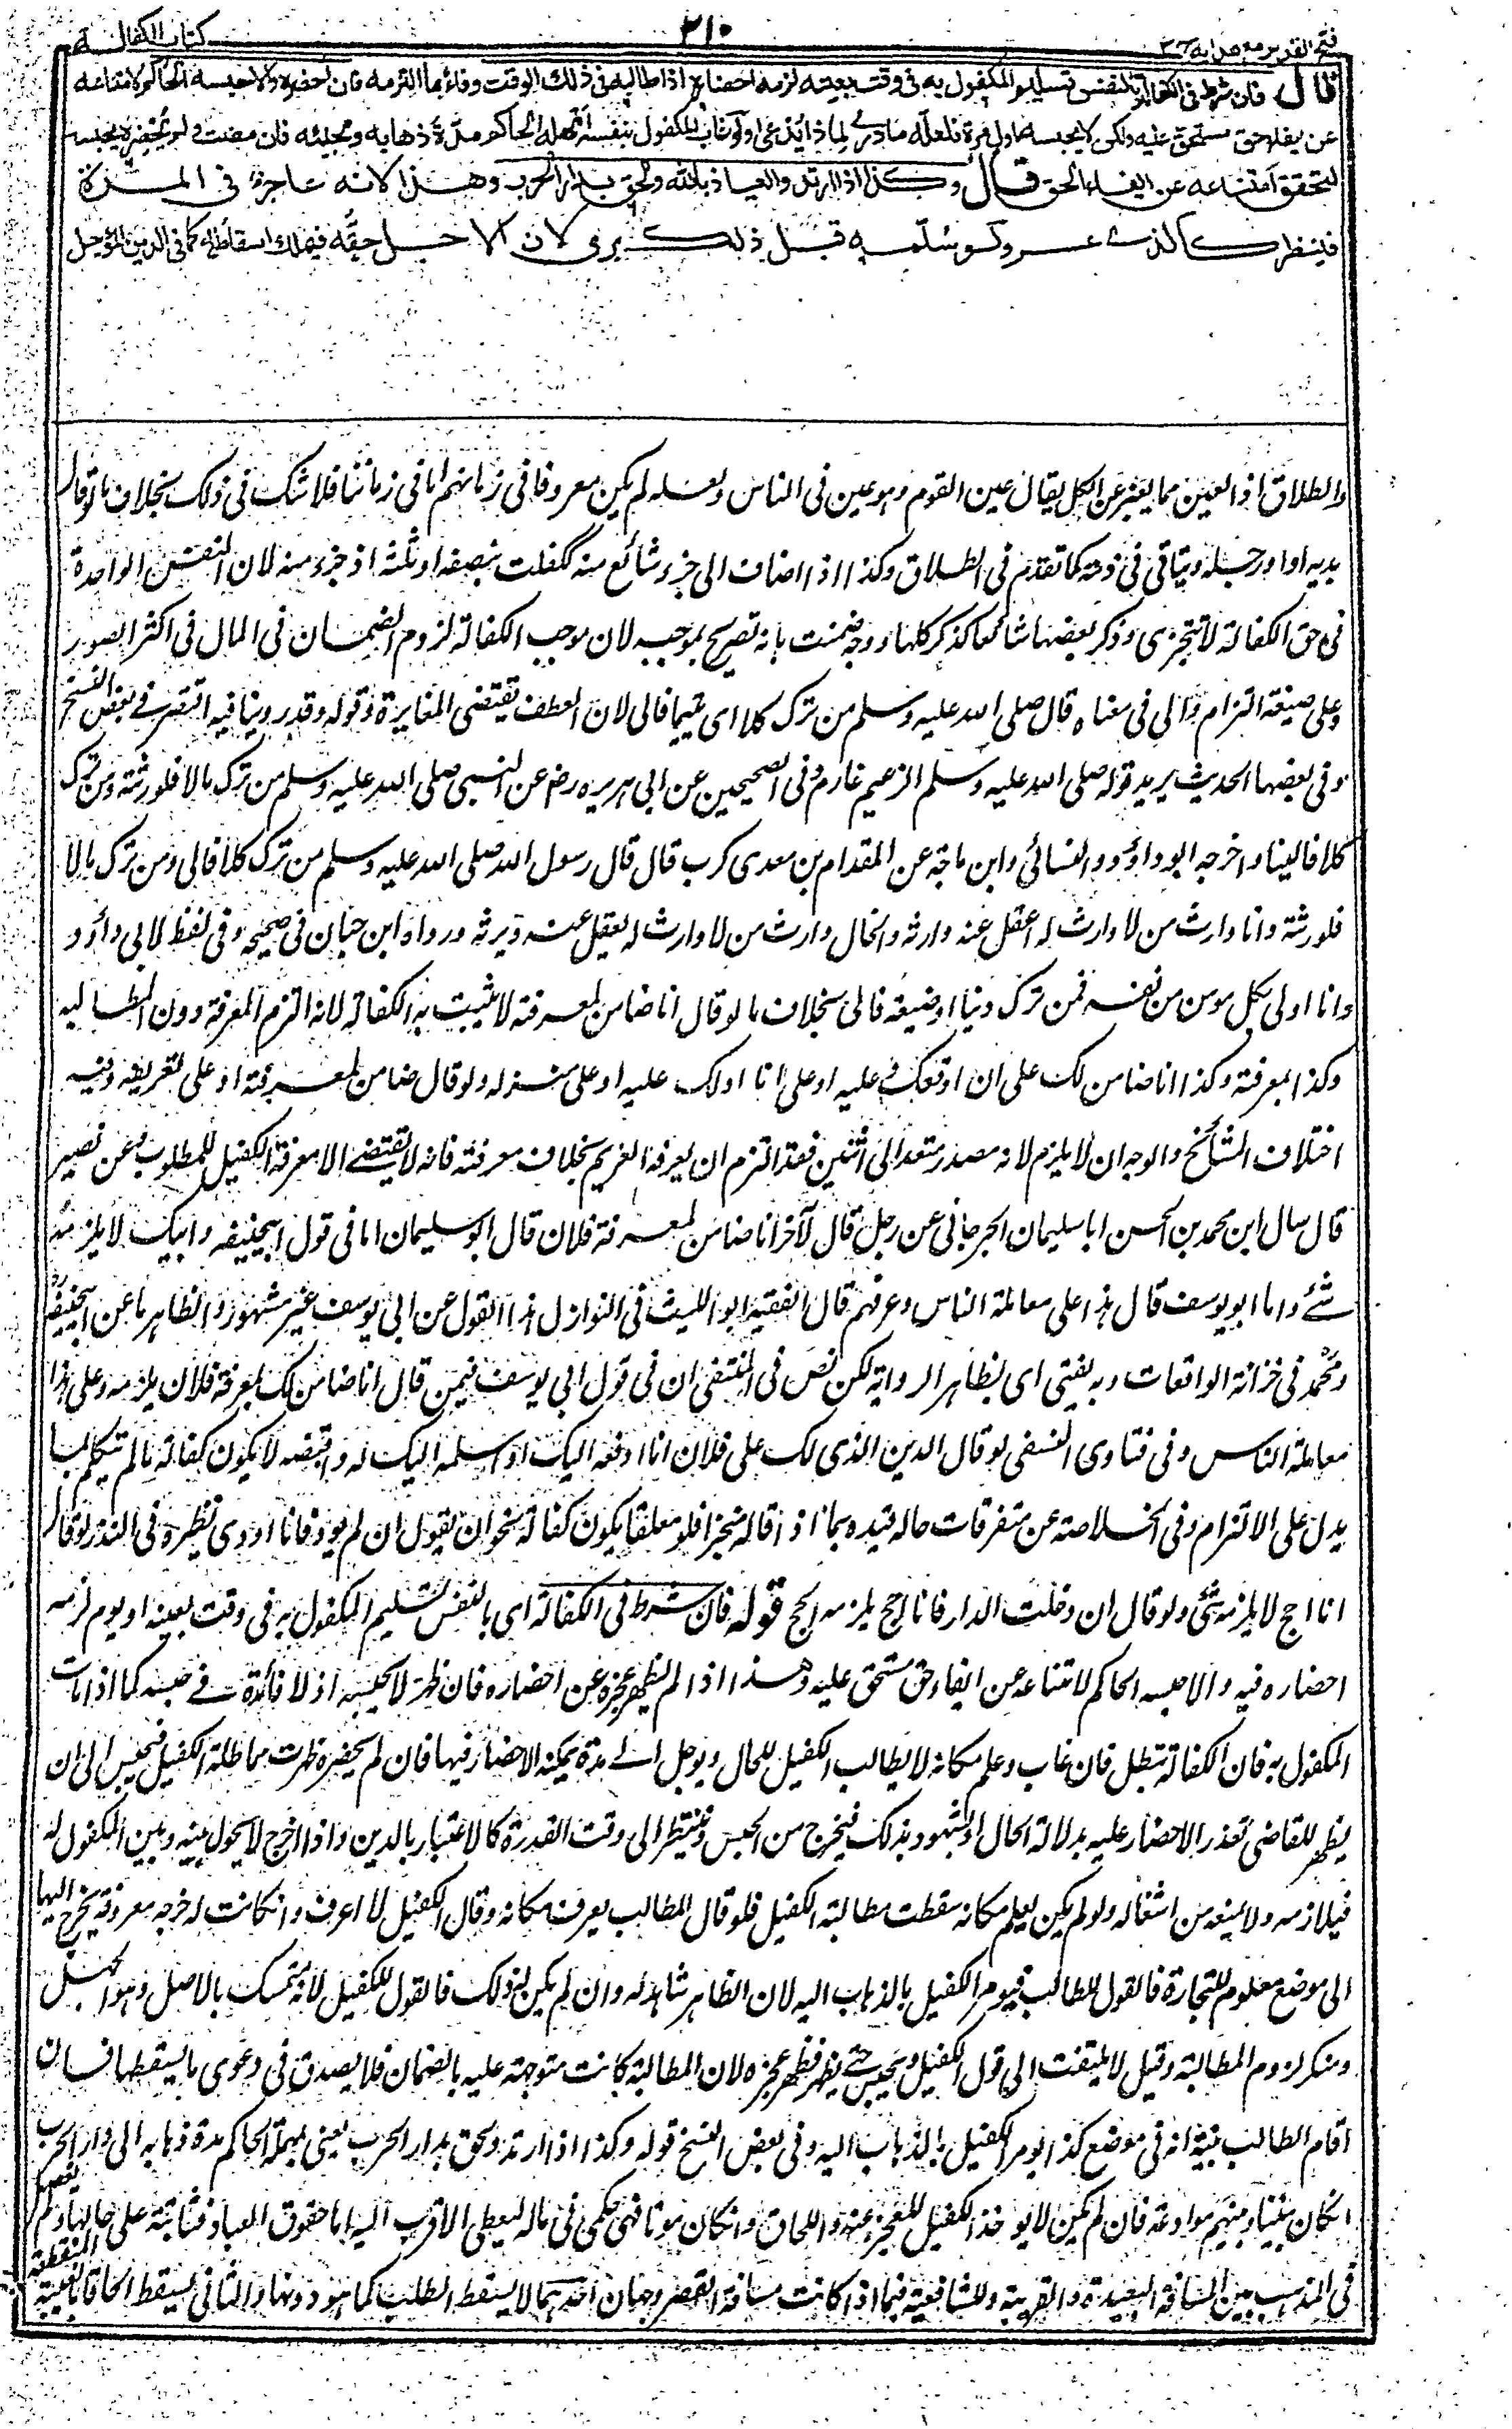 فتح القدير مع هدايه ج٣
٣١٠
كتاب الكفالة
قال فان شرط فى الكفالة بالنفس تسليم المكفول به فى وقت بعينه لزمه احضاره اذا طالبه فى ذلك الوقت وفاء بما التزمه فان احضره والا حبسه الحاكم لامتناعه
عن ايفاء حق مستحق عليه ولكن لا يحبسه اول مرة فلعله ما درى لما ذا يدعى ولو غاب المكفول بنفسه امهله الحاكم مدة ذهابه ومجيئه فان مضت ولم يحضره يحبسه
لتحقق امتناعه عن ايفاء الحق قال وكذا اذا ارتد والعياذ بالله ولحق بدار الحرب وهذا لانه عاجز فى المدة
فينظر كالذى اعسر ولو سلمه قبل ذلك برئ لان الاجل حقه فيملك اسقاطه كما فى الدين المؤجل
والطلاق اذ العين مما يعبر عن الكل يقال عين القوم وهو عين فى الناس ولعله لم يكن معروفا فى زمانهم اما فى زماننا فلا شك فى ذلك بخلاف ما لو قال
بيده او رجله ويتاتى فى ذمته كما تقدم فى الطلاق وكذا اذا اضاف الى جزء شائع منه ككفلت بنصفه او ثلثه اذ جزء منه لان النفس الواحدة
فى حق الكفالة لا تتجزى وذكر بعضها شائعا كذكر كلها ووجه ضمنت بانه تصريح بموجبه لان موجب الكفالة لزوم الضمان فى المال فى اكثر الصور
وعلى صيغة التزام والى فى معناه قال صلى الله عليه وسلم من ترك كلا اى يتيما فالى لان العطف يقتضى المغايرة وقوله وقد روينا فيه اقتصر فى بعض النسخ
وفى بعضها الحديث يريد قوله صلى الله عليه وسلم الزعيم غارم وفى الصحيحين عن ابى هريره رض عن النبى صلى الله عليه وسلم من ترك مالا فلورثته ومن ترك
كلا فالينا واخرجه ابو داؤد والنسائى وابن ماجة عن المقدام بن معدى كرب قال قال رسول الله صلى الله عليه وسلم من ترك كلا فالى ومن ترك مالا
فلورثته وانا وارث من لا وارث له اعقل عنه وارثه والخال وارث من لا وارث له يعقل عنه ويرثه ورواه ابن حبان فى صحيحه وفى لفظ لابى داؤد
وانا اولى بكل مومن من نفسه فمن ترك دينا او ضيعة فالى بخلاف ما لو قال انا ضامن لمعرفته لا يثبت به الكفالة لانه التزم المعرفة دون المطالبة
وكذا بمعرفته وكذا انا ضامن لك على ان اوقفك عليه او على انا ادلك عليه او على منزله ولو قال ضامن لمعرفته او على تعريفه وفيه
اختلاف المشائخ والوجه ان لا يلزم لانه مصدر متعد الى اثنين فقد التزم ان يعرفه الغريم بخلاف معرفته فانه لا يقتضى الا معرفة الكفيل للمطلوب وعن نصير
قال سال ابن محمد بن الحسن ابا سليمان الجرجانى عن رجل قال لآخر انا ضامن لمعرفة فلان قال ابو سليمان اما فى قول ابيحنيفه وابيك لا يلزمه
شئ واما ابو يوسف قال هذا على معاملة الناس وعرفهم قال الفقيه ابو الليث فى النوازل هذا القول عن ابى يوسف غير مشهور والظاهر ما عن ابيحنيفة
ومحمد فى خزانة الواقعات وبه يفتى اى بظاهر الرواية لكن نص فى المنتقى ان فى قول ابى يوسف فيمن قال انا ضامن لك بمعرفة فلان يلزمه وعلى هذا
معاملة الناس وفى فتاوى النسفى لو قال الدين الذى لك على فلان انا ادفعه اليك او اسلمه اليك له واقبضه لا يكون كفالة ما لم يتكلم بما
يدل على الالتزام وفى الخلاصة عن متفرقات خاله قيده بما اذا قاله منجزا فلو معلقا يكون كفالة نحو ان يقول ان لم يود فانا اودى نظيره فى النذر لو قال
انا احج لا يلزمه شئ ولو قال ان دخلت الدار فانا احج يلزمه الحج قوله فان شرط فى الكفالة اى بالنفس تسليم المكفول به فى وقت بعينه او يوم لزمه
احضاره فيه والا حبسه الحاكم لامتناعه عن ايفاء حق مستحق عليه وهذا اذا لم يظهر عجزه عن احضاره فان ظهر لا يحبسه اذ لا فائدة فى حبسه كما اذا مات
المكفول به فان الكفالة تبطل فان غاب وعلم مكانه لا يطالب الكفيل للحال ويوجل الى مدة يمكنه الاحضار فيها فان لم يحضره ظهرت مماطلة الكفيل فيحبس الى ان
يظهر للقاضى تعذر الاحضار عليه بدلالة الحال او بشهود بذلك فيخرج من الحبس وينتظر الى وقت القدرة كالاعتبار بالدين واذا اخرج لا يحول بينه وبين المكفول له
فيلازمه ولا يمنعه من اشغاله ولو لم يكن يعلم مكانه سقطت مطالبة الكفيل فلو قال المطالب يعرف مكانه وقال الكفيل لا اعرف وان كانت له خرجه معروفة يخرج اليها
الى موضع معلوم للتجارة فالقول للطالب فيومر الكفيل بالذهاب اليه لان الظاهر شاهد له وان لم يكن ذلك فالقول للكفيل لانه متمسك بالاصل وهو الجهل
ومنكر لزوم المطالبة وقيل لا يلتفت الى قول الكفيل ويحبس حتى يظهر عجزه لان المطالبة كانت متوجهة عليه بالضمان فلا يصدق فى دعوى ما يسقطها فان
اقام الطالب بينة انه فى موضع كذا يومر الكفيل بالذهاب اليه وفى بعض النسخ قوله وكذا اذا ارتد ولحق بدار الحرب يعنى يمهله الحاكم مدة ذهابه الى دار الحرب
ان كان بيننا وبينهم موادعة فان لم يكن لا يواخذ الكفيل للعجز عنه واللحاق وان كان موتا فهى حكمى فى ماله ليعطى الاقرب اليه اما حقوق العباد فثابتة على حالها ولم يفصل
فى المذهب بين المسافة البعيدة والقريبة وللشافعية فيما اذا كانت مسافة القصر وجهان احدهما لا يسقط الطلب كما هو دونها والثانى يسقط الحاقا بالغيبة المنقطعة